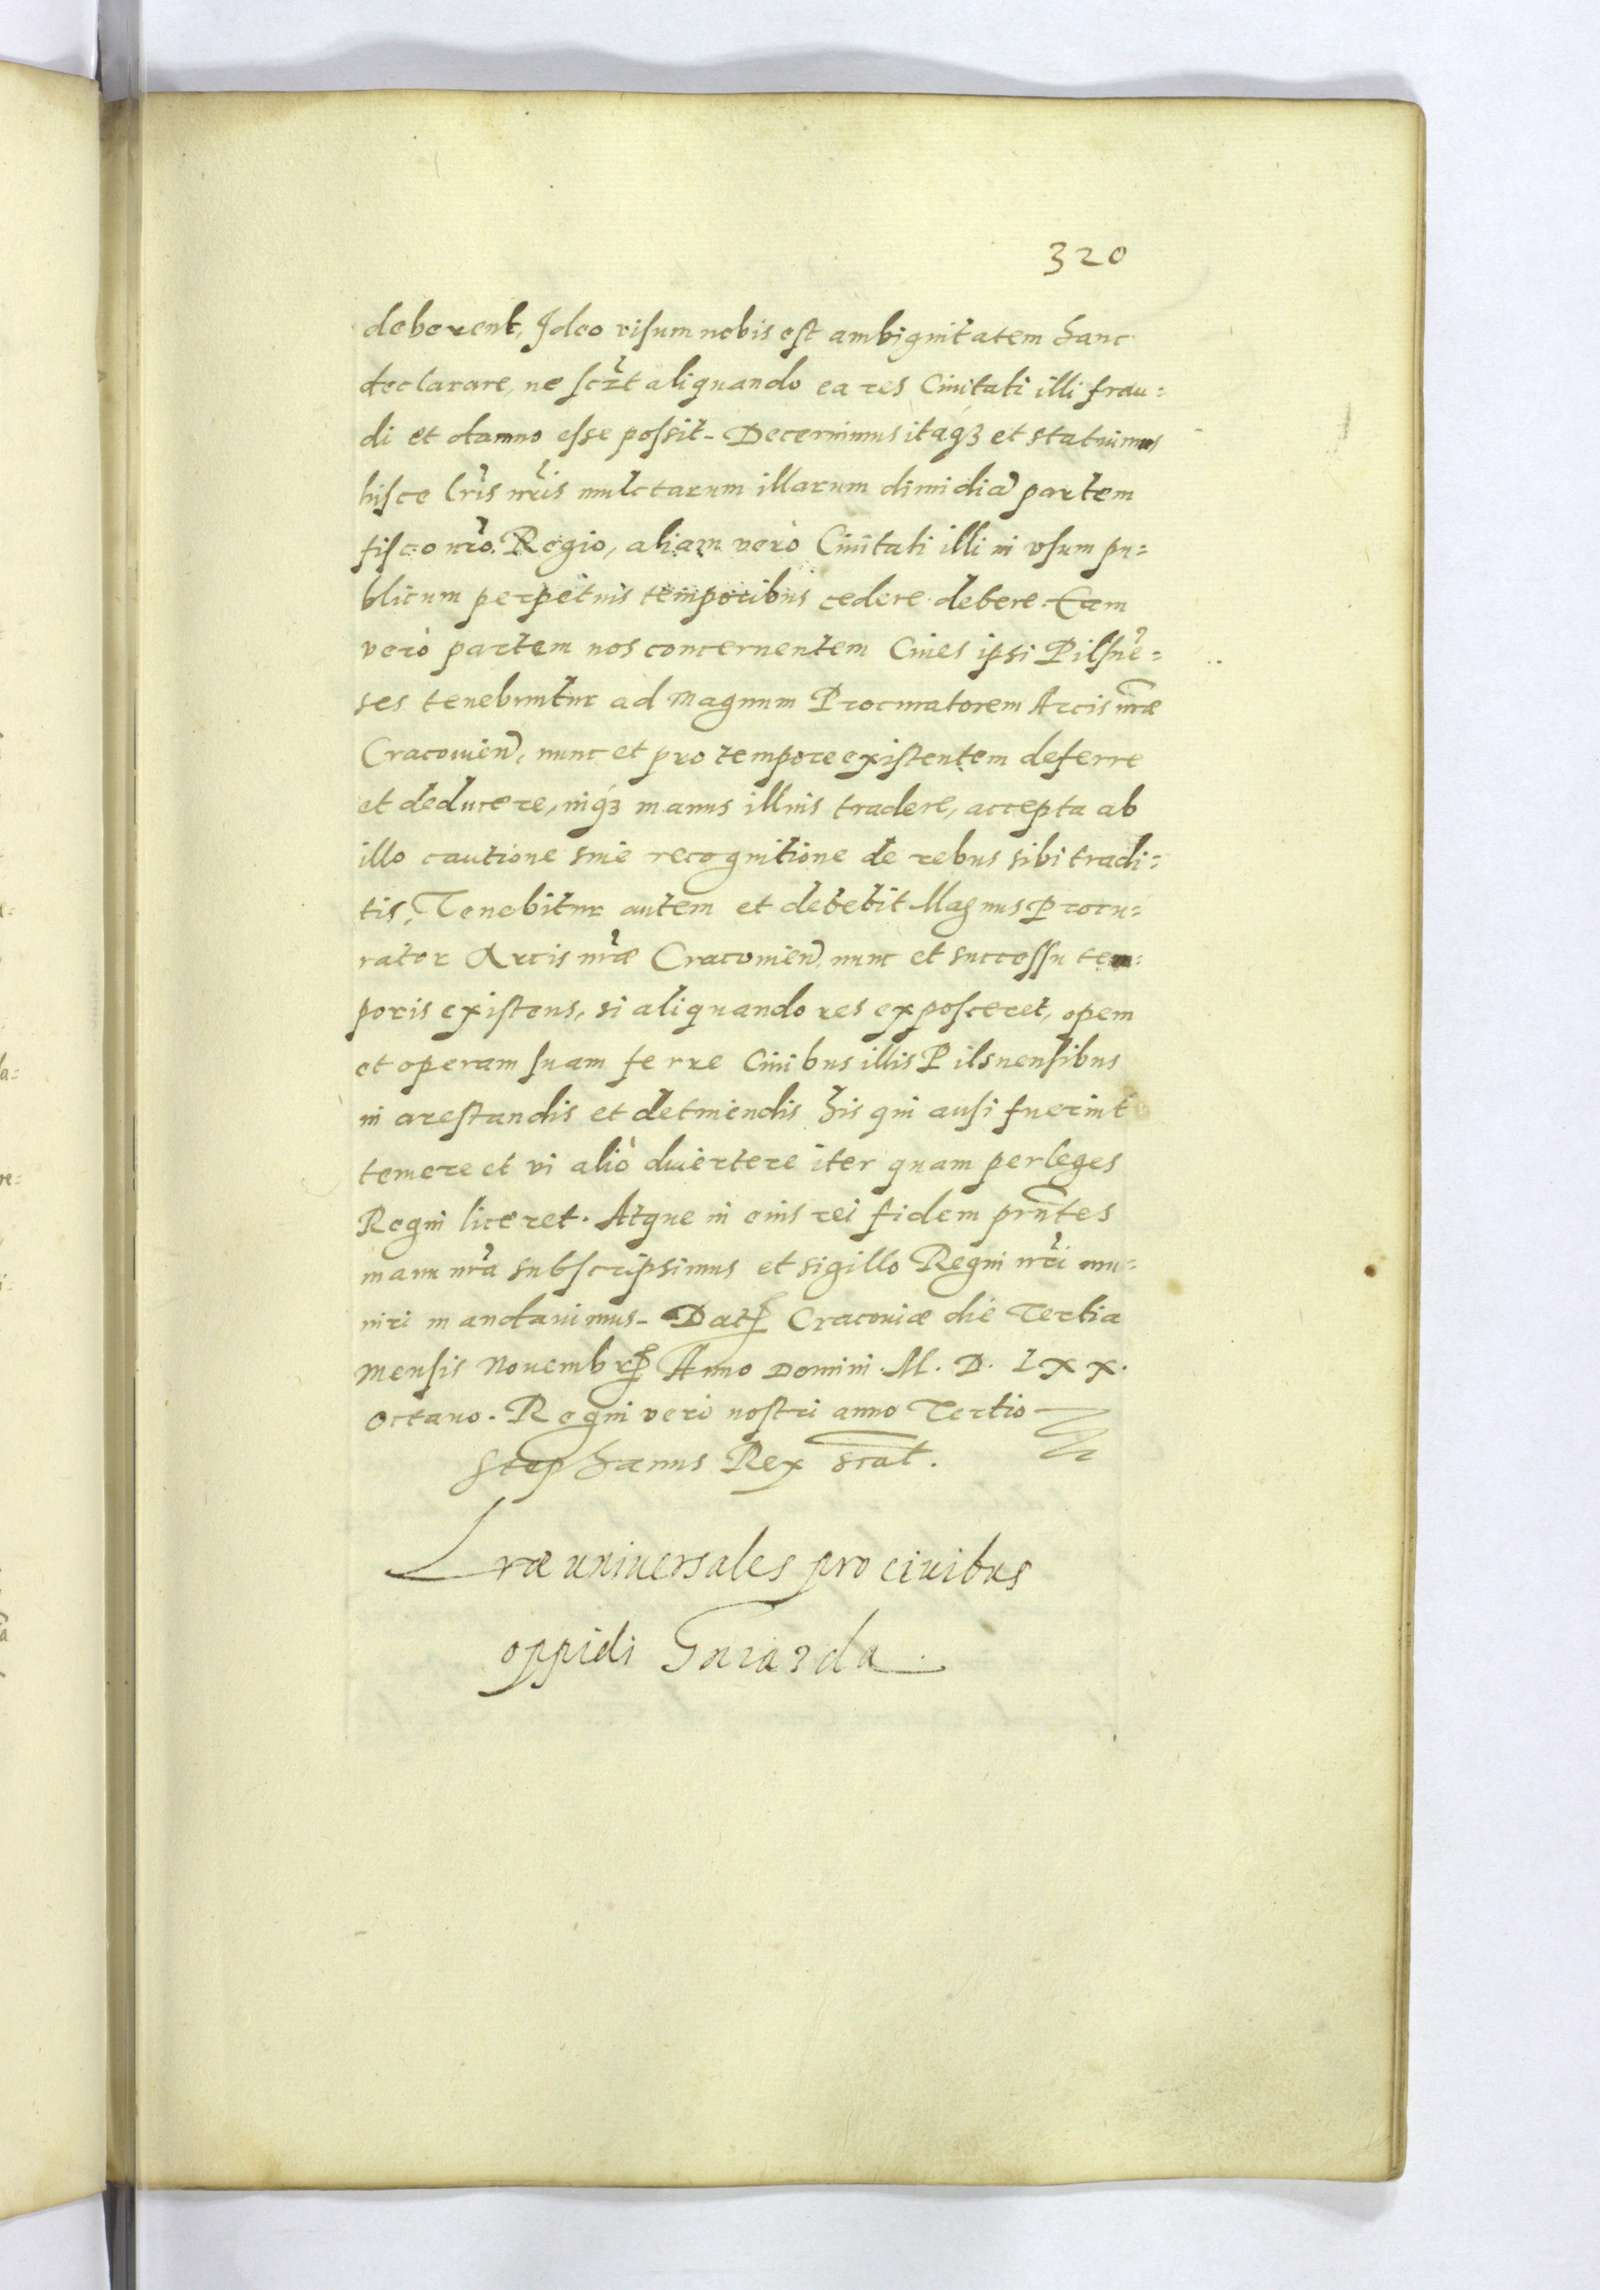 320
deberent, Ideo visum nobis est ambiguitatem hanc
declarare, ne scz̃t aliquando ea res Ciuitati illi frau=
di et damno esse possit- Decernimus itaqȝ et statuimus
hisce lr̃is nr̃is mulctarum illarum dimidiã partem
fisco nr̃o Regio, aliam verò Ciuitati illi in vsum pu=
blicum perpetuis temporibus cedere debere. Eam
verò partem nos concernentem Ciues ipsi Pilsnẽ=
ses tenebuntur ad Magnum Procuratorem Arcis nr̃æ
Cracouieñ, nunc et pro tempore existentem deferre
et deducere, inqȝ manus illius tradere, accepta ab
illo cautione siue recognitione de rebus sibi tradi=
tis, Tenebitur autem et debebit Magnus Procu=
rator Arcis nr̃æ Cracouieñ, nunc et successu tem=
poris existens, si aliquando res exposceret, opem
et operam suam ferre Ciuibus illis Pilsnensibus
in arestandis et detinendis his qui ausi fuerint
temere et vi aliò diuertere iter quam per leges
Regni liceret. Atque in eius rei fidem prñtes
manu nr̃a subscripsimus et sigillo Regni nr̃i mu=
niri mandauimus- Datꝭ Cracouiæ die Tertia
Mensis Nouembrꝭ Anno Domini. M. D. Lxx.
Octauo. Regni verò nostri anno Tertio
Stephanus Rex scat̃.
Lræ uniuersales pro ciuibus
oppidi